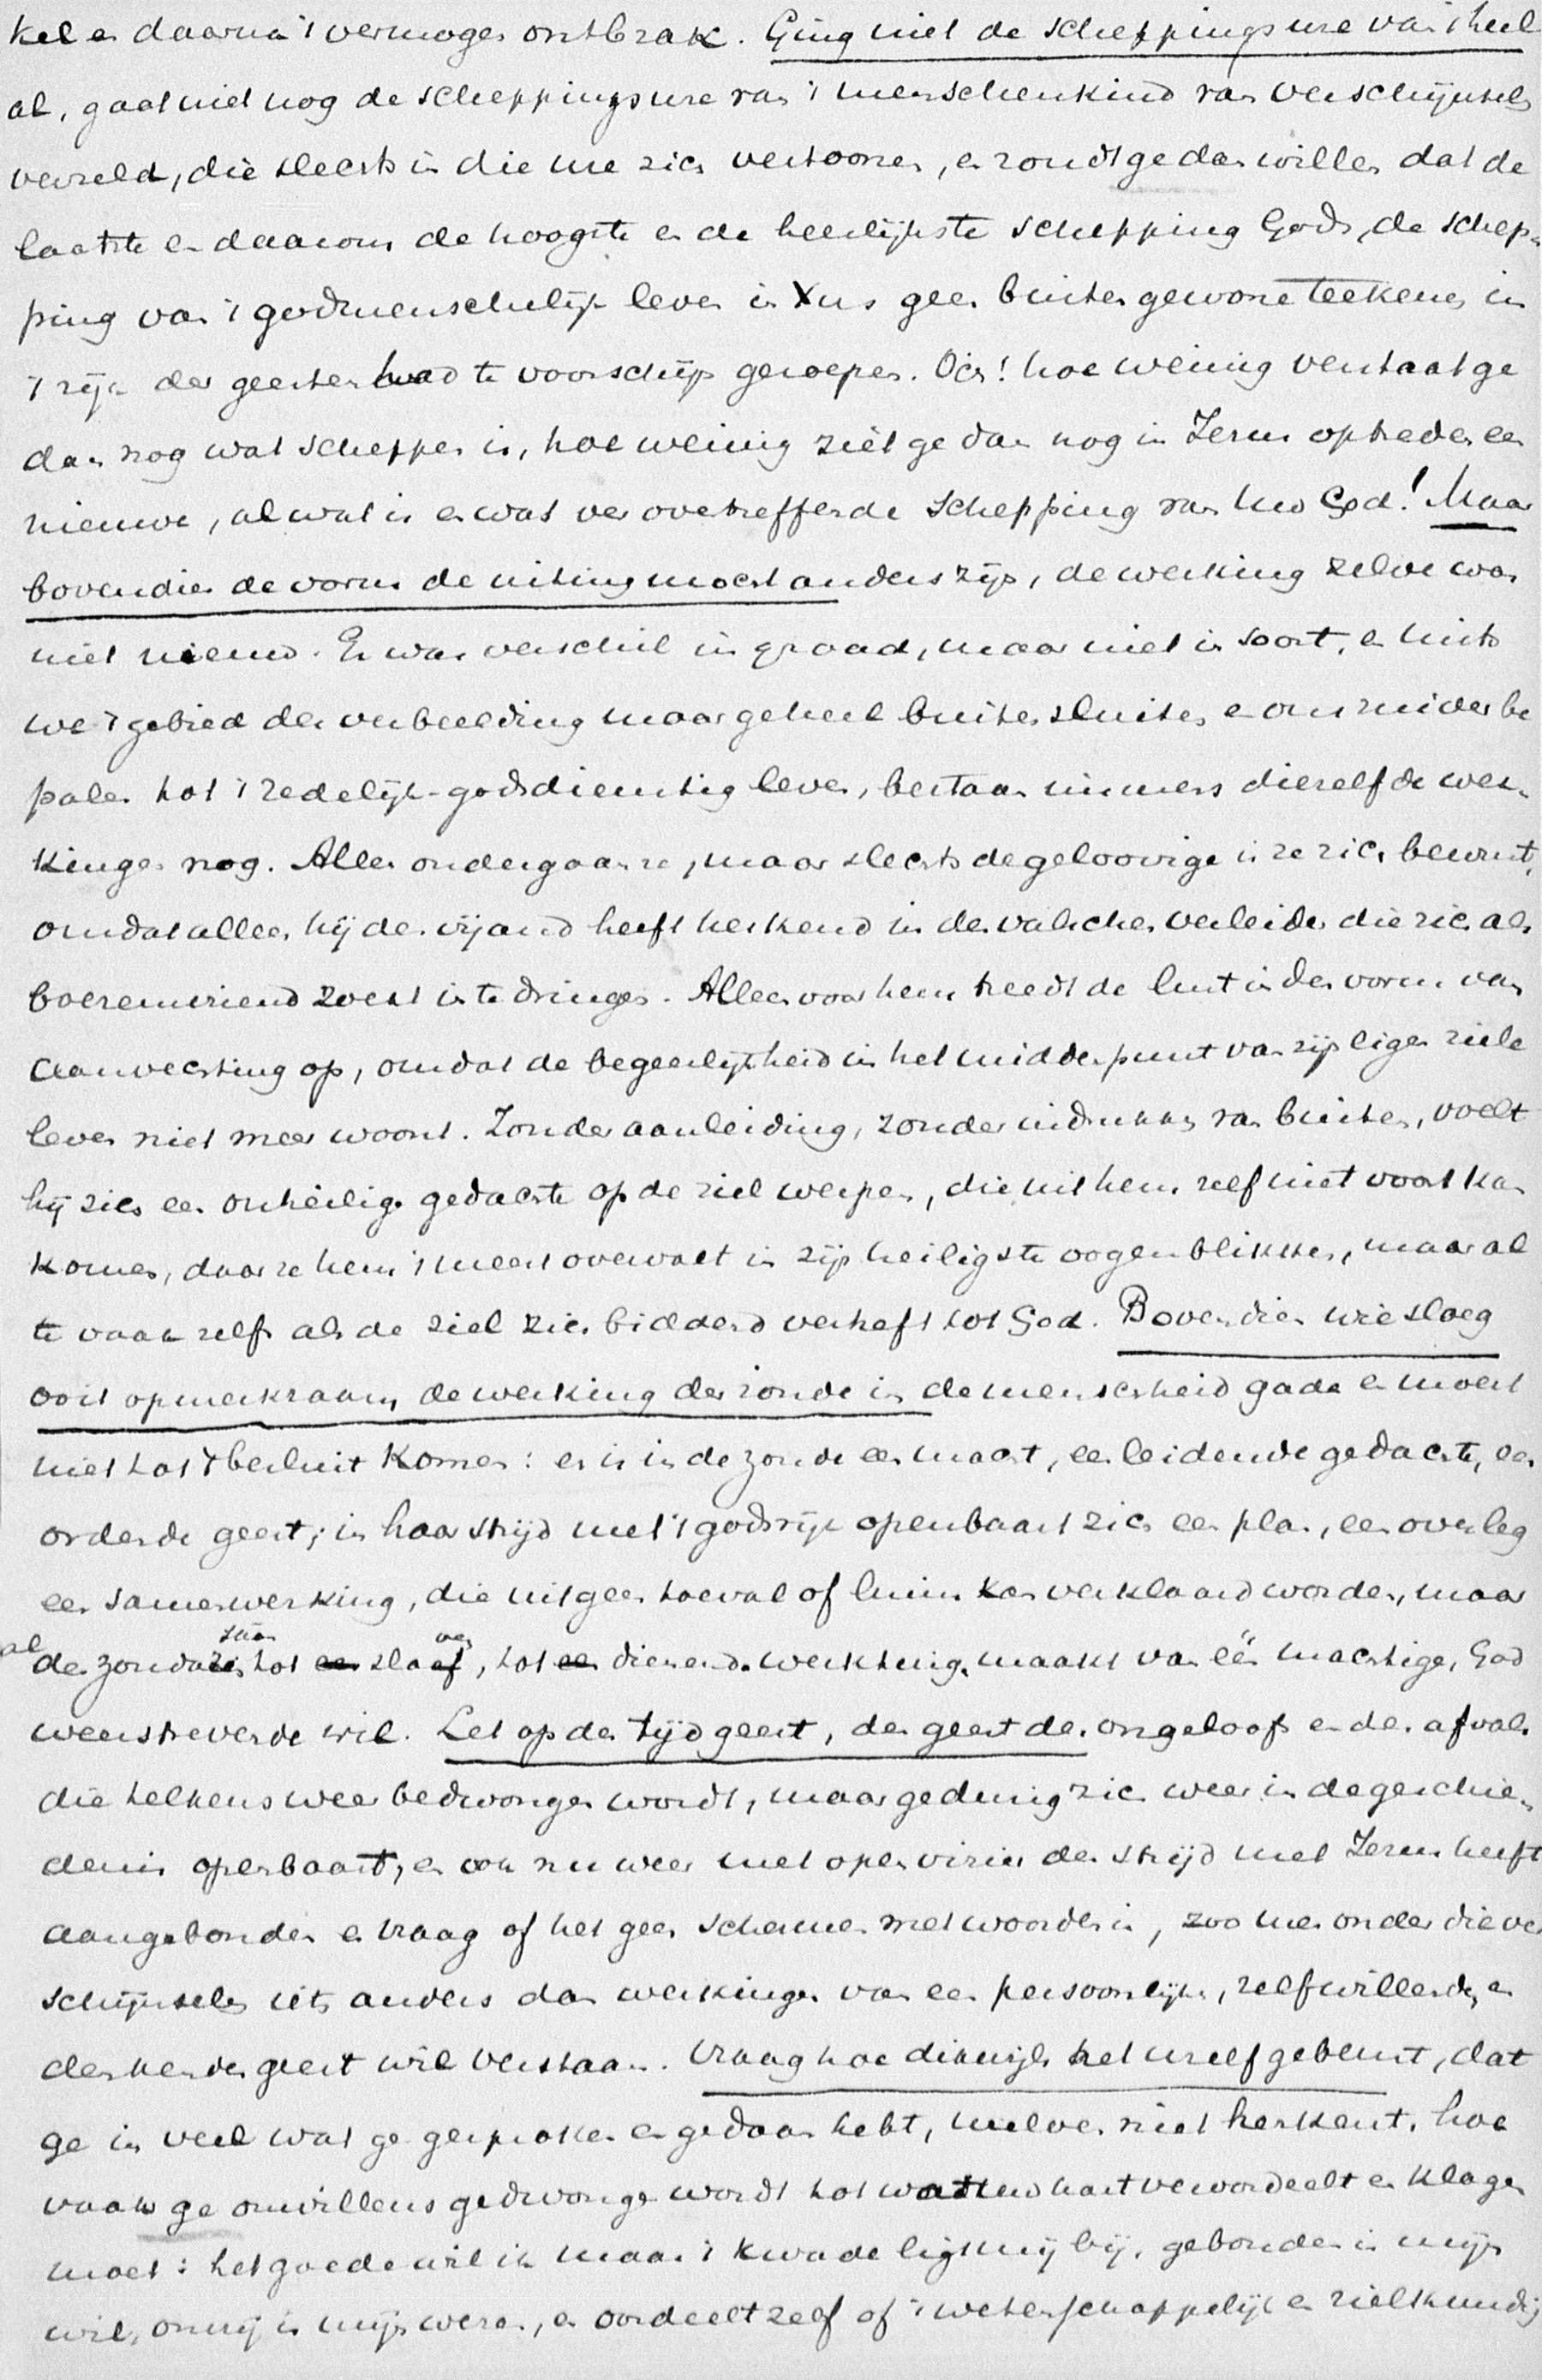 kel en daarna 't vermogen ontbrak. Ging niet de scheppingsure van 't heel
al, gaat niet nog de scheppingsure van 't menschenkind van verschijnselen
verzeld, die slechts in die ure zich vertoonen, en zoudt ge dan willen dat de
laatste en daarom de hoogste en de heerlijkste schepping Gods, de schep-
ping van 't godmenschelijk leven in Xus geen buitengewone teekenen in
't rijk der geesten had te voorschijn geroepen. Och! hoe weinig verstaat ge
dan nog wat scheppen is, hoe weinig ziet ge dan nog in Jezus optreden een
nieuwe, al wat is en was ver overtreffende schepping van Uw God! Maar
bovendien de vorm de uiting moest anders zijn, de werking zelve was
niet nieuw. Er was verschil in graad, maar niet in soort, en mits
we 't gebied der verbeelding maar geheel buitensluiten en ons zuiver be
palen tot 't zedelijk-godsdienstig leven, bestaan immers diezelfde wer-
kingen nog. Allen ondergaan ze, maar slechts de geloovige is ze zich bewust,
omdat alleen hij den vijand heeft herkend in den valschen verleider die zich als
boezemvriend zoekt in te dringen. Alleen voor hem treedt de lust in den vorm van
aanvechting op, omdat de begeerlijkheid in het middenpunt van zijn eigen ziele
leven niet meer woont. Zonder aanleiding, zonder indrukken van buiten, voelt
hij zich een onheilige gedachte op de ziel werpen, die uit hem zelf niet voort kan
komen, daar ze hem 't meest overvalt in zijn heiligste oogenblikken, maar al
te vaak zelfs als de ziel zich biddend verheft tot God. Bovendien wie sloeg
ooit opmerkzaam de werking der zonde in de menschheid gade en moest
niet tot 't besluit komen: er is in de zonde een macht, een leidende gedachte, een
ordende geest; in haar strijd met 't godsrijk openbaart zich een plan, een overleg
een samenwerking, die uit geen toeval of luim kan verklaard worden, maar
al de zondaren saam tot een slaafven, tot een dienende werktuig maakt van één machtige, God
weerstrevende wil. Let op den tijdgeest, den geest des ongeloofs en des afvals
die telkens weer bedwongen wordt, maar gedurig zich weer in de geschie-
denis openbaart, en ook nu weer met open vizier den strijd met Jezus heeft
aangebonden en vraag of het geen schermen met woorden is, zoo men onder die ver
schijnselen iets anders dan werkingen van een persoonlijke, zelfwillende, en
denkenden geest wil verstaan. Vraag hoe dikwijls het uzelf gebeurt, dat
ge in veel wat ge gesproken en gedaan hebt, uzelven niet herkent, hoe
vaak ge onwillens gedwongen wordt tot wat uw hart veroordeelt en klagen
moet: het goede wil ik maar 't kwade ligt mij bij, gebonden is mijn
wil, onvrij is mijn wezen, en oordeelt zelf of 't wetenschappelijk en zielkundig